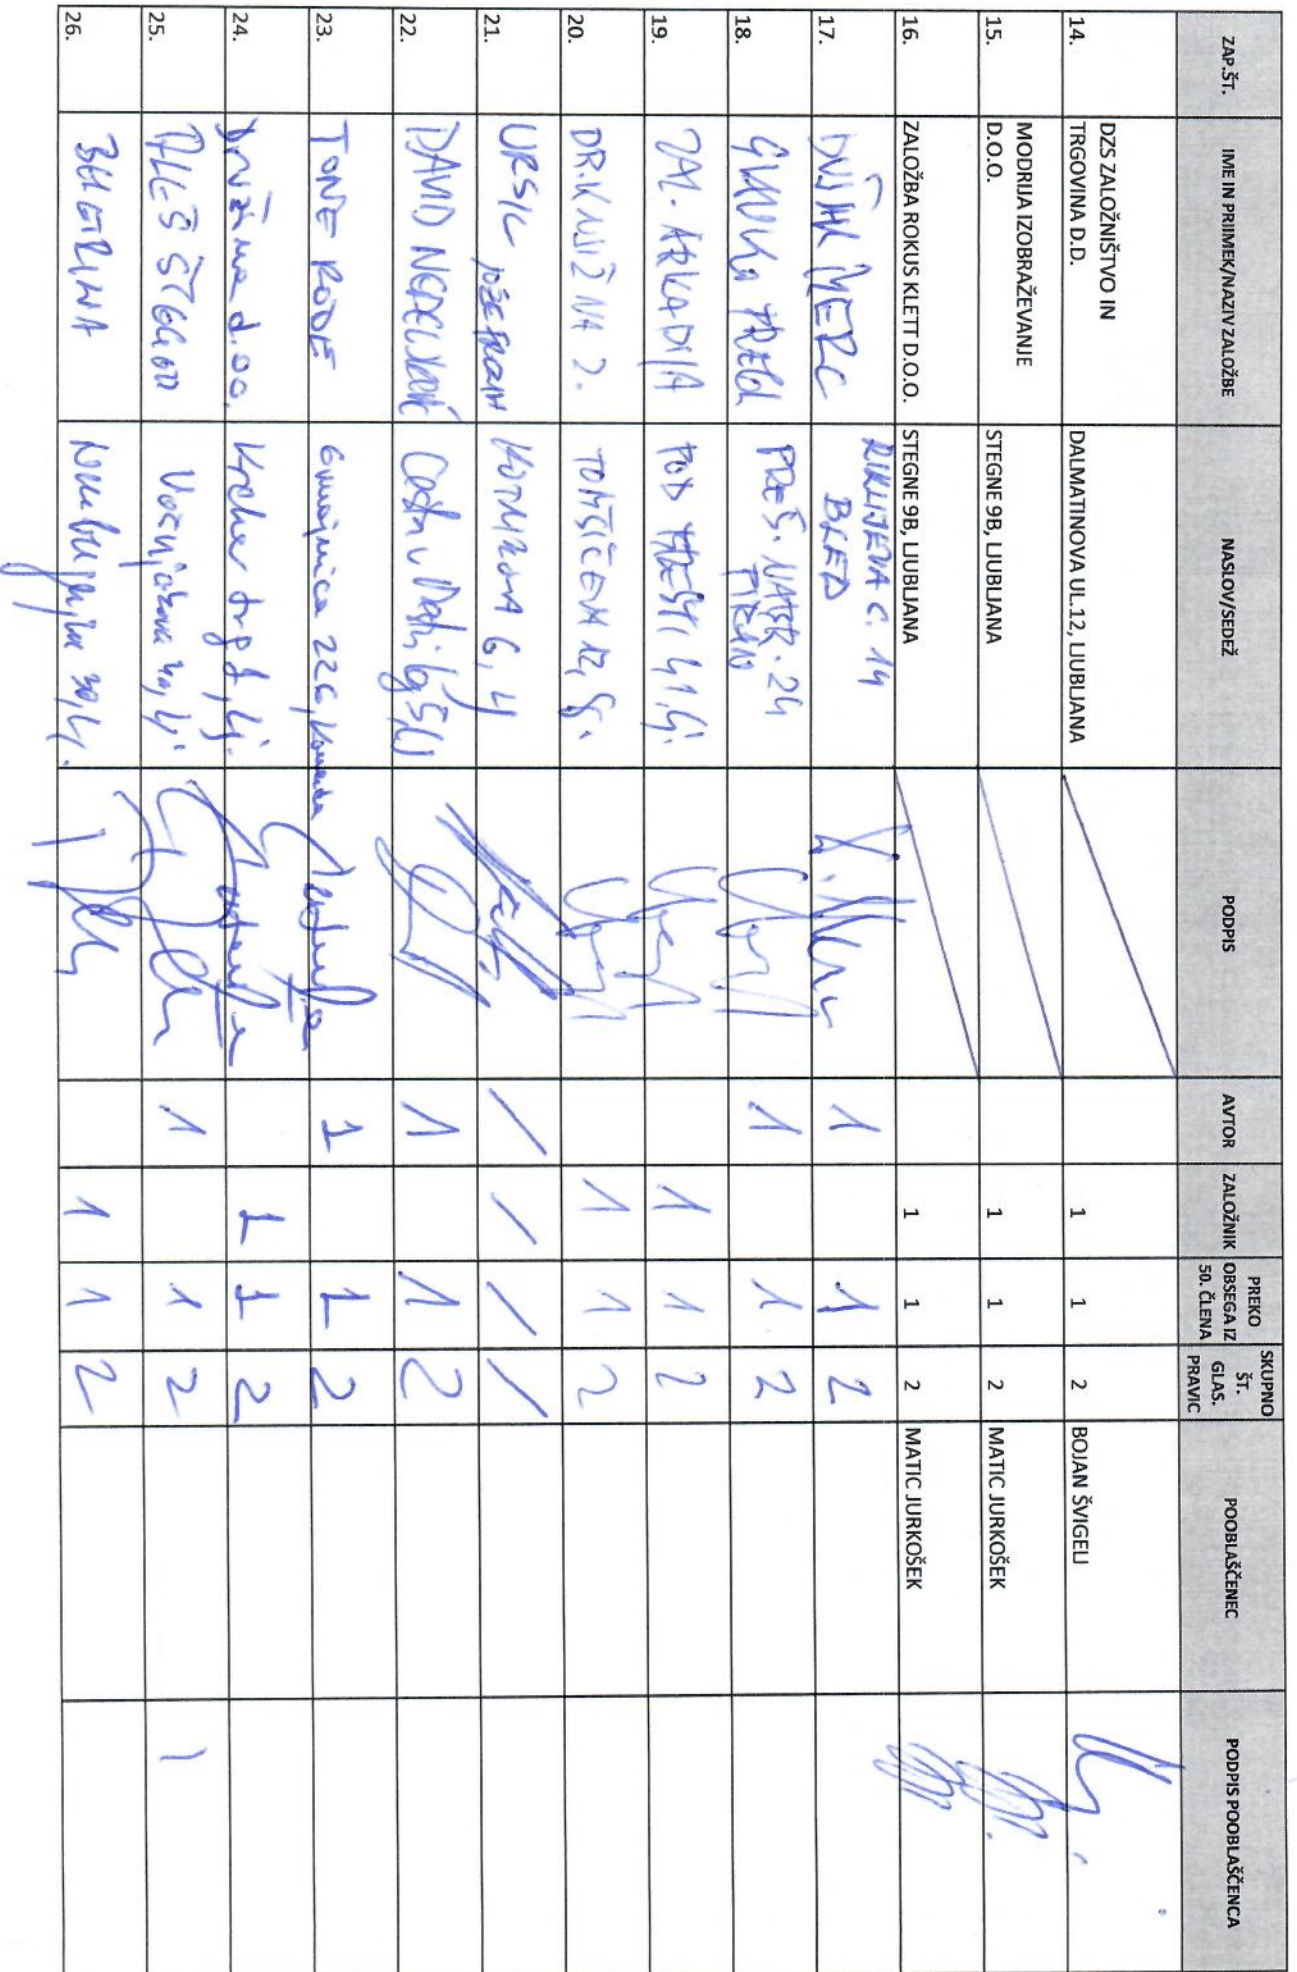 ZAP.ŠT. IME IN PRIIMEK/NAZIV ZALOŽBE NASLOV/SEDEŽ PODPIS AVTOR ZALOŽNIK PREKO OBSEGA IZ 50. ČLENA SKUPNO ŠT. GLAS. PRAVIC POOBLAŠČENEC PODPIS POOBLAŠČENCA
14. DZS ZALOŽNIŠTVO IN TRGOVINA D.D. DALMATINOVA UL.12, LJUBLJANA 1 1 2 BOJAN ŠVIGELJ
15. MODRIJA IZOBRAŽEVANJE D.O.O. STEGNE 9B, LJUBLJANA 1 1 2 MATIC JURKOŠEK
16. ZALOŽBA ROKUS KLETT D.O.O. STEGNE 9B, LJUBLJANA 1 1 2 MATIC JURKOŠEK
17. DUŠAN MERC C. 14 BLED 1 1 2
18. PREŠ. NABR. 24 PIRAN 1 1 2
19. ZAL. ARKADIJA POD 41, Lj. 1 1 2
20. DR. KNJIŽNA Z. TOMŠIČEVA 12, 1 1 2
21. URSIC KOTNIKOVA 6, LJ / / / /
22. DAVID Cesta v 1 1 2
23. TONE RODE Gmajnica 226, Komenda 1 1 2
24. Družina d.o.o. Krekov trg 1, Lj. 1 1 2
25. ALEŠ ŠTEGER Lj. 1 1 2
26. BELETRINA Lj. 1 1 2